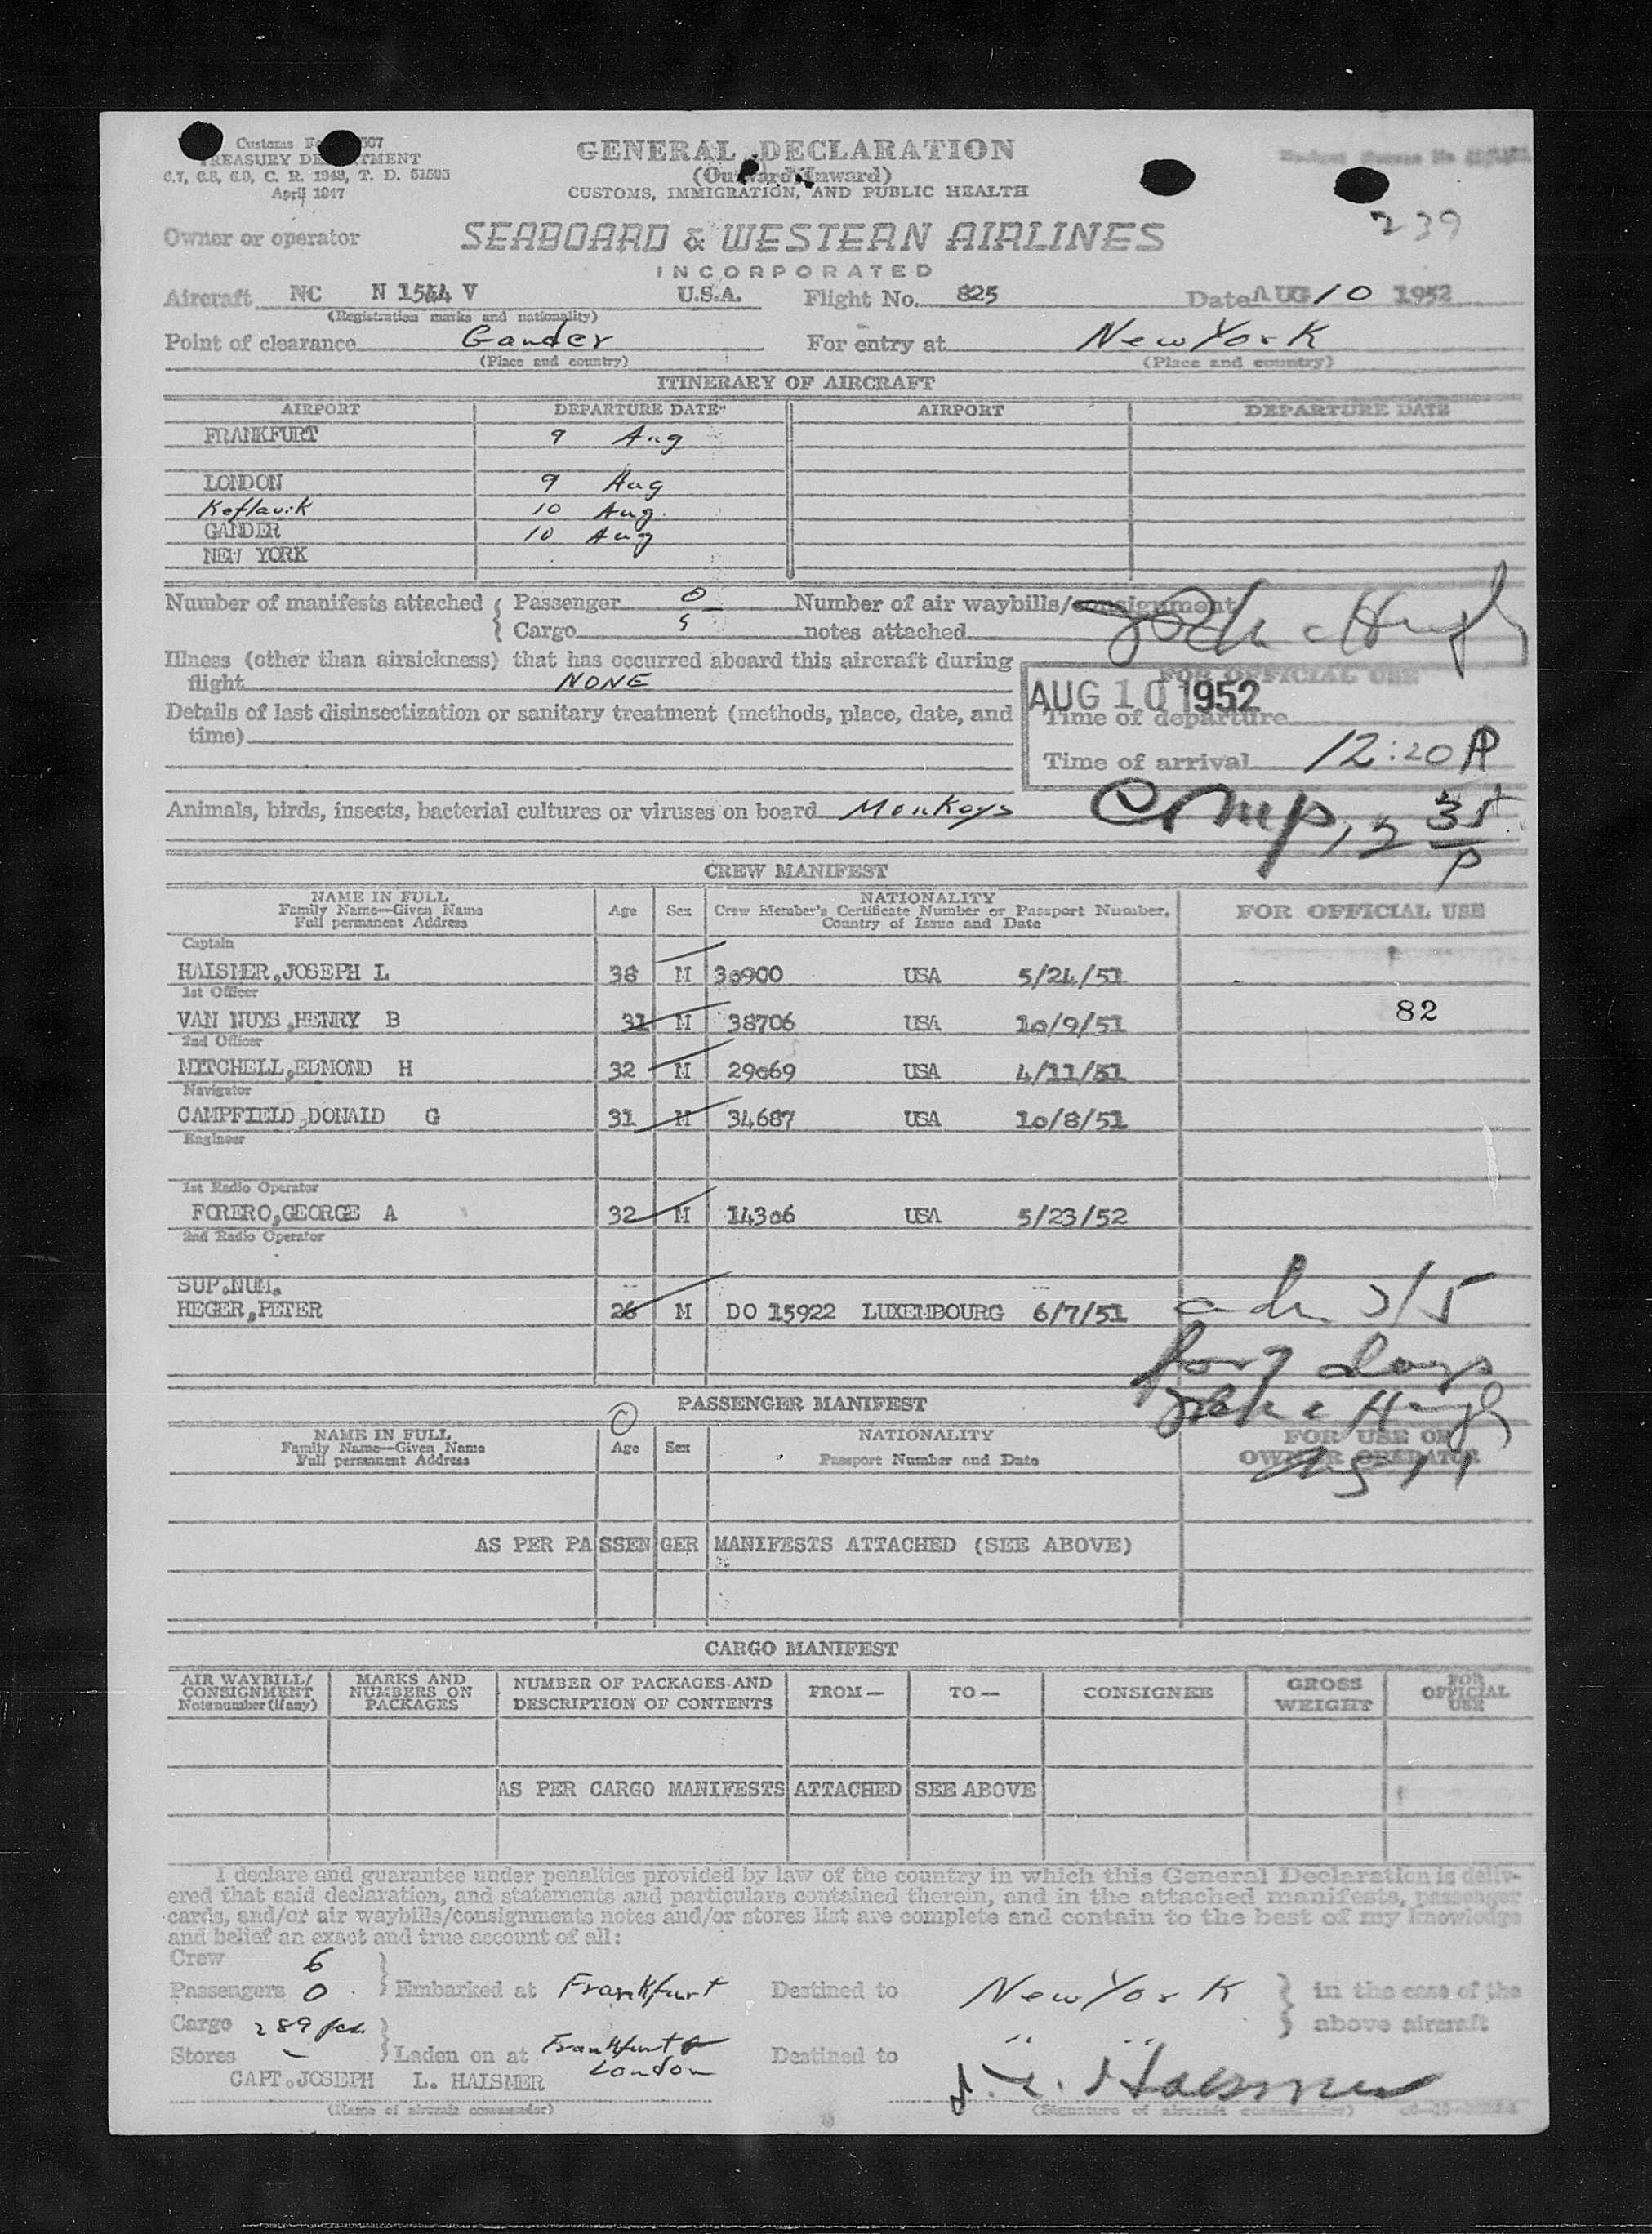 Customs 507
TREASURY DEPARTMENT
6.7, 6.8, 6.9, C. R. 1943, T. D. 51585
April 1947
GENERAL DECLARATION
(Outward/Inward)
CUSTOMS, IMMIGRATION, AND PUBLIC HEALTH
239
Owner or operator SEABOARD & WESTERN AIRLINES
INCORPORATED
Aircraft NC N 1544 V U.S.A. Flight No. 825 Date AUG 10 1952
(Registration marks and nationality)
Point of clearance Gander For entry at New York
(Place and country) (Place and country)
ITINERARY OF AIRCRAFT
AIRPORT DEPARTURE DATE AIRPORT DEPARTURE DATE
FRANKFURT 9 Aug
LONDON 9 Aug
Keflavik 10 Aug.
GANDER 10 Aug
NEW YORK
Number of manifests attached { Passenger 0 Number of air waybills/consignment
Cargo 5 notes attached
Illness (other than airsickness) that has occurred aboard this aircraft during
flight NONE
FOR OFFICIAL USE
AUG 10 1952
Details of last disinsectization or sanitary treatment (methods, place, date, and
time)
Time of departure
Time of arrival 12:20 P
Animals, birds, insects, bacterial cultures or viruses on board Monkeys
Comp, 2 35/P
CREW MANIFEST
NAME IN FULL
Family Name—Given Name
Full permanent Address
Age Sex
NATIONALITY
Crew Member's Certificate Number or Passport Number,
Country of Issue and Date
FOR OFFICIAL USE
Captain
HAISMER,JOSEPH L 38 M 30900 USA 5/24/51
1st Officer
VAN NUYS,HENRY B 31 M 38706 USA 10/9/51 82
2nd Officer
MITCHELL,EDMOND H 32 M 29069 USA 4/11/51
Navigator
CAMPFIELD,DONALD G 31 M 34687 USA 10/8/51
Engineer
1st Radio Operator
FORERO,GEORGE A 32 M 14306 USA 5/23/52
2nd Radio Operator
SUP.NUM.
HEGER,PETER 26 M DO 15922 LUXEMBOURG 6/7/51 3/5
for 7 Days
PASSENGER MANIFEST
0
NAME IN FULL
Family Name—Given Name
Full permanent Address
Age Sex
NATIONALITY
Passport Number and Date
FOR USE OF
OWNER OR OPERATOR
AS PER PASSENGER MANIFESTS ATTACHED (SEE ABOVE)
CARGO MANIFEST
AIR WAYBILL/
CONSIGNMENT
Note number (if any)
MARKS AND
NUMBERS ON
PACKAGES
NUMBER OF PACKAGES AND
DESCRIPTION OF CONTENTS
FROM— TO— CONSIGNEE
GROSS
WEIGHT
FOR
OFFICIAL
USE
AS PER CARGO MANIFESTS ATTACHED SEE ABOVE
I declare and guarantee under penalties provided by law of the country in which this General Declaration is deliv-
ered that said declaration, and statements and particulars contained therein, and in the attached manifests, passenger
cards, and/or air waybills/consignments notes and/or stores list are complete and contain to the best of my knowledge
and belief an exact and true account of all:
Crew 6
Passengers 0 } Embarked at Frankfurt Destined to New York } in the case of the
above aircraft
Cargo 289 pcs.
Stores — } Laden on at Frankfurt & London Destined to " "
CAPT.JOSEPH L. HAISMER J. L. Haismer
(Name of aircraft commander) (Signature of aircraft commander)